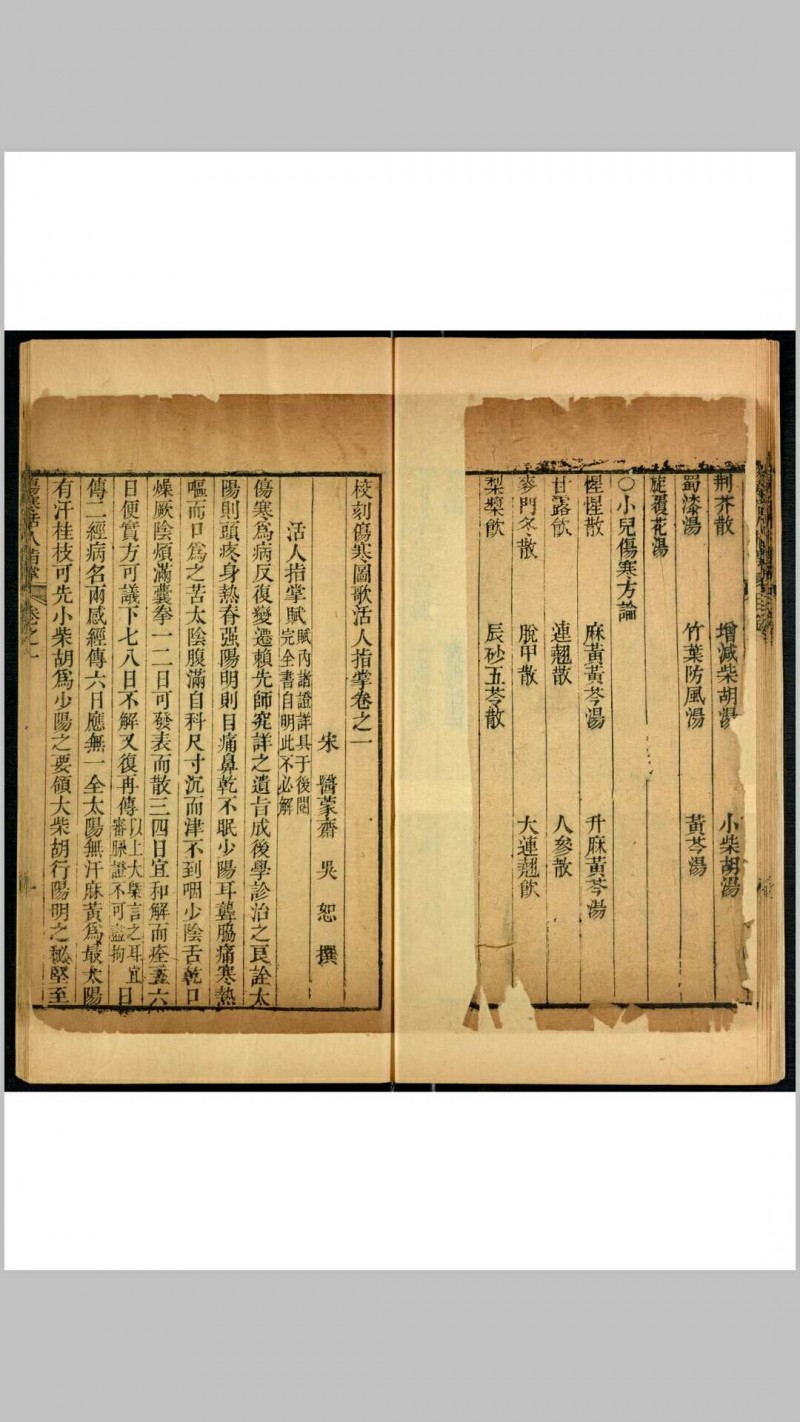 荆芥散 增減柴胡湯 小柴胡湯
蜀漆湯 竹葉防風湯 黃芩湯
旋覆花湯
○小兒傷寒方論
惺惺散 麻黃黃芩湯 升麻黃芩湯
甘露飲 連翹散 人參散
麥門冬散 脫甲散 大連翹飲
梨漿飲 辰砂五苓散
校刻傷寒圖歌活人指掌卷之一
宋 醫蒙齋 吳 恕 撰
活人指掌賦 賦內諸證詳具于後閱
完全書自明此不必解
傷寒爲病反復變遷賴先師究詳之遺旨成後學診治之良詮太
陽則頭疼身熱脊强陽明則目痛鼻乾不眠少陽耳聾脇痛寒熱
嘔而口爲之苦太陰腹滿自利尺寸沉而津不到咽少陰舌乾口
燥厥陰煩滿囊拳一二日可發表而散三四日宜和解而痊五六
日便實方可議下七八日不解又復再傳 以上大槩言之耳宜
審脉證不可盡拘 日
傳二經病名兩感經傳六日應無一全太陽無汗麻黃爲最太陽
有汗桂枝可先小柴胡爲少陽之要領大柴胡行陽明之秘堅至
傷寒活人指掌 卷之一